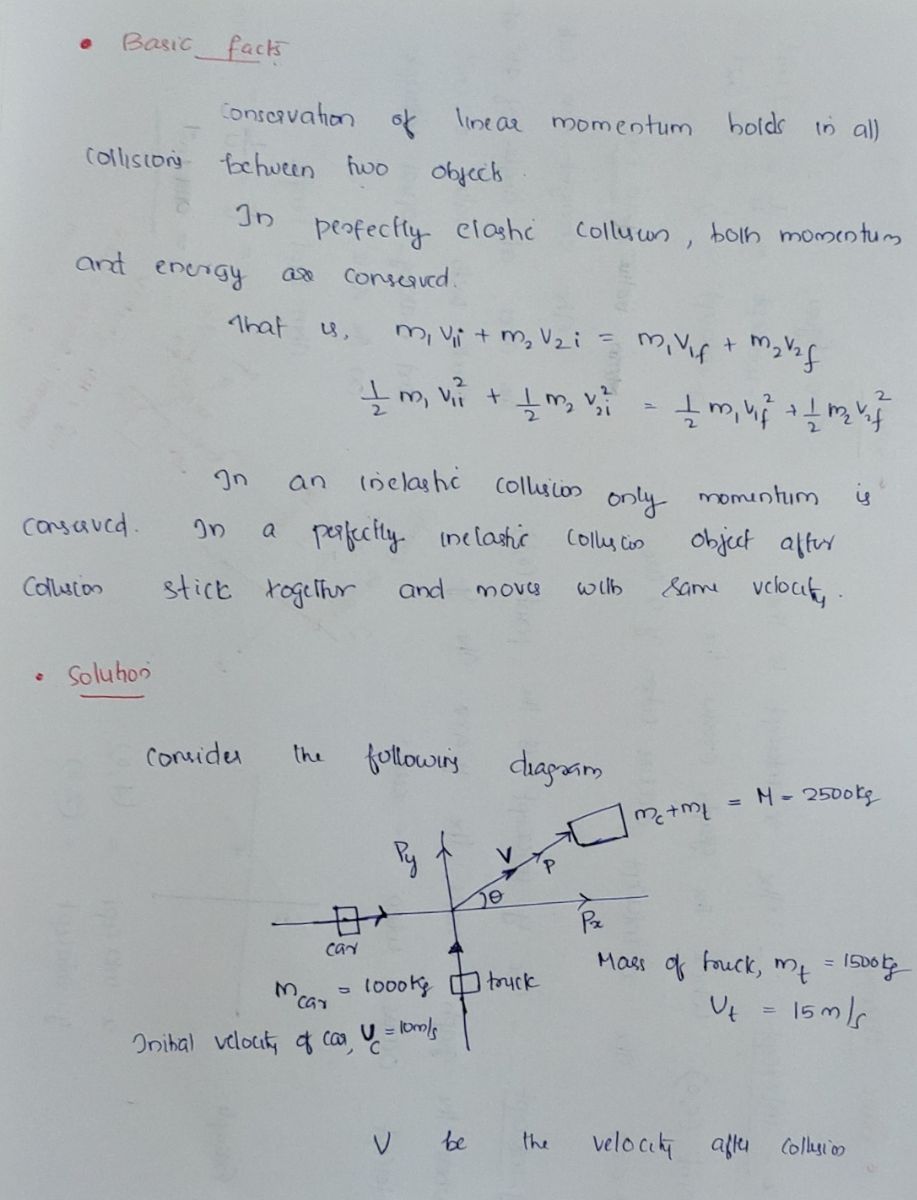 • Basic facts
Conservation of linear momentum holds in all
collisions between two objects.
In perfectly elastic collision, both momentum
and energy are conserved.
That is, m₁ V₁i + m₂ V₂i = m₁V₁f + m₂V₂f
1/2 m₁ V₁i² + 1/2 m₂ V₂i² = 1/2 m₁ V₁f² + 1/2 m₂ V₂f²
In an inelastic collision only momentum is
conserved. In a perfectly inelastic collision object after
collision stick together and moves with same velocity.
• Solution
Consider the following diagram
m_c + m_t = M = 2500kg
Py
V
P
θ
Px
car
m_car = 1000kg
truck
Mass of truck, m_t = 1500kg
U_t = 15 m/s
Initial velocity of car, U_c = 10m/s
V be the velocity after collision